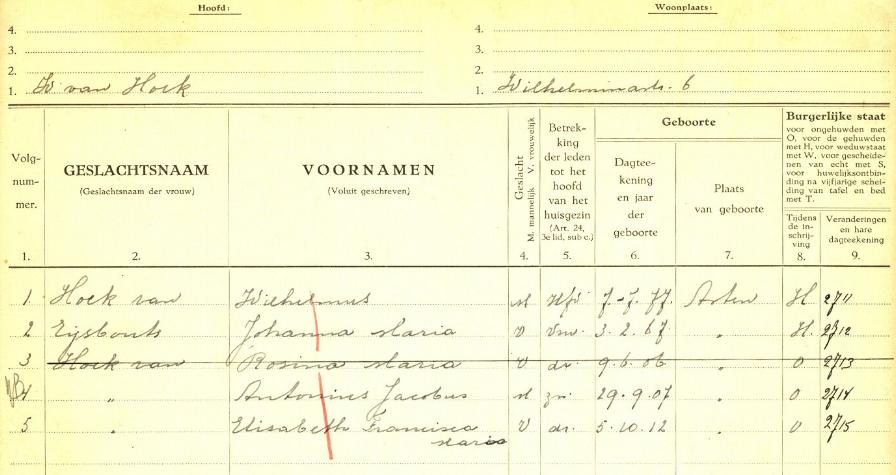 Hoofd: Woonplaats:
4. 4.
3. 3.
2. 2.
1. W van Hoek 1. Wilhelminastr. 6
Volg-
num-
mer.
1.
GESLACHTSNAAM
(Geslachtsnaam der vrouw)
2.
VOORNAMEN
(Voluit geschreven)
3.
Geslacht
M. mannelijk V. vrouwelijk
4.
Betrek-
king
der leden
tot het
hoofd
van het
huisgezin
(Art. 24,
3e lid, sub c.)
5.
Geboorte
Dagtee-
kening
en jaar
der
geboorte
6.
Plaats
van geboorte
7.
Burgerlijke staat
voor ongehuwden met
O, voor de gehuwden
met H, voor weduwstaat
met W, voor gescheide-
nen van echt met S,
voor huwelijksontbin-
ding na vijfjarige schei-
ding van tafel en bed
met T.
Tijdens
de in-
schrij-
ving
8.
Veranderingen
en hare
dagteekening
9.
1 Hoek van Wilhelmus M Hfd 7-7.77 Asten H 2711
2 Eijsbouts Johanna Maria V Vrw. 3.2.67 " H. 2712
3 Hoek van Rosina Maria V dr. 9.6.06 " O 2713
4 " Antonius Jacobus M zn. 29.9.07 " O 2714
5 " Elisabeth Francisca V dr. 5.10.12 " O 2715
Maria